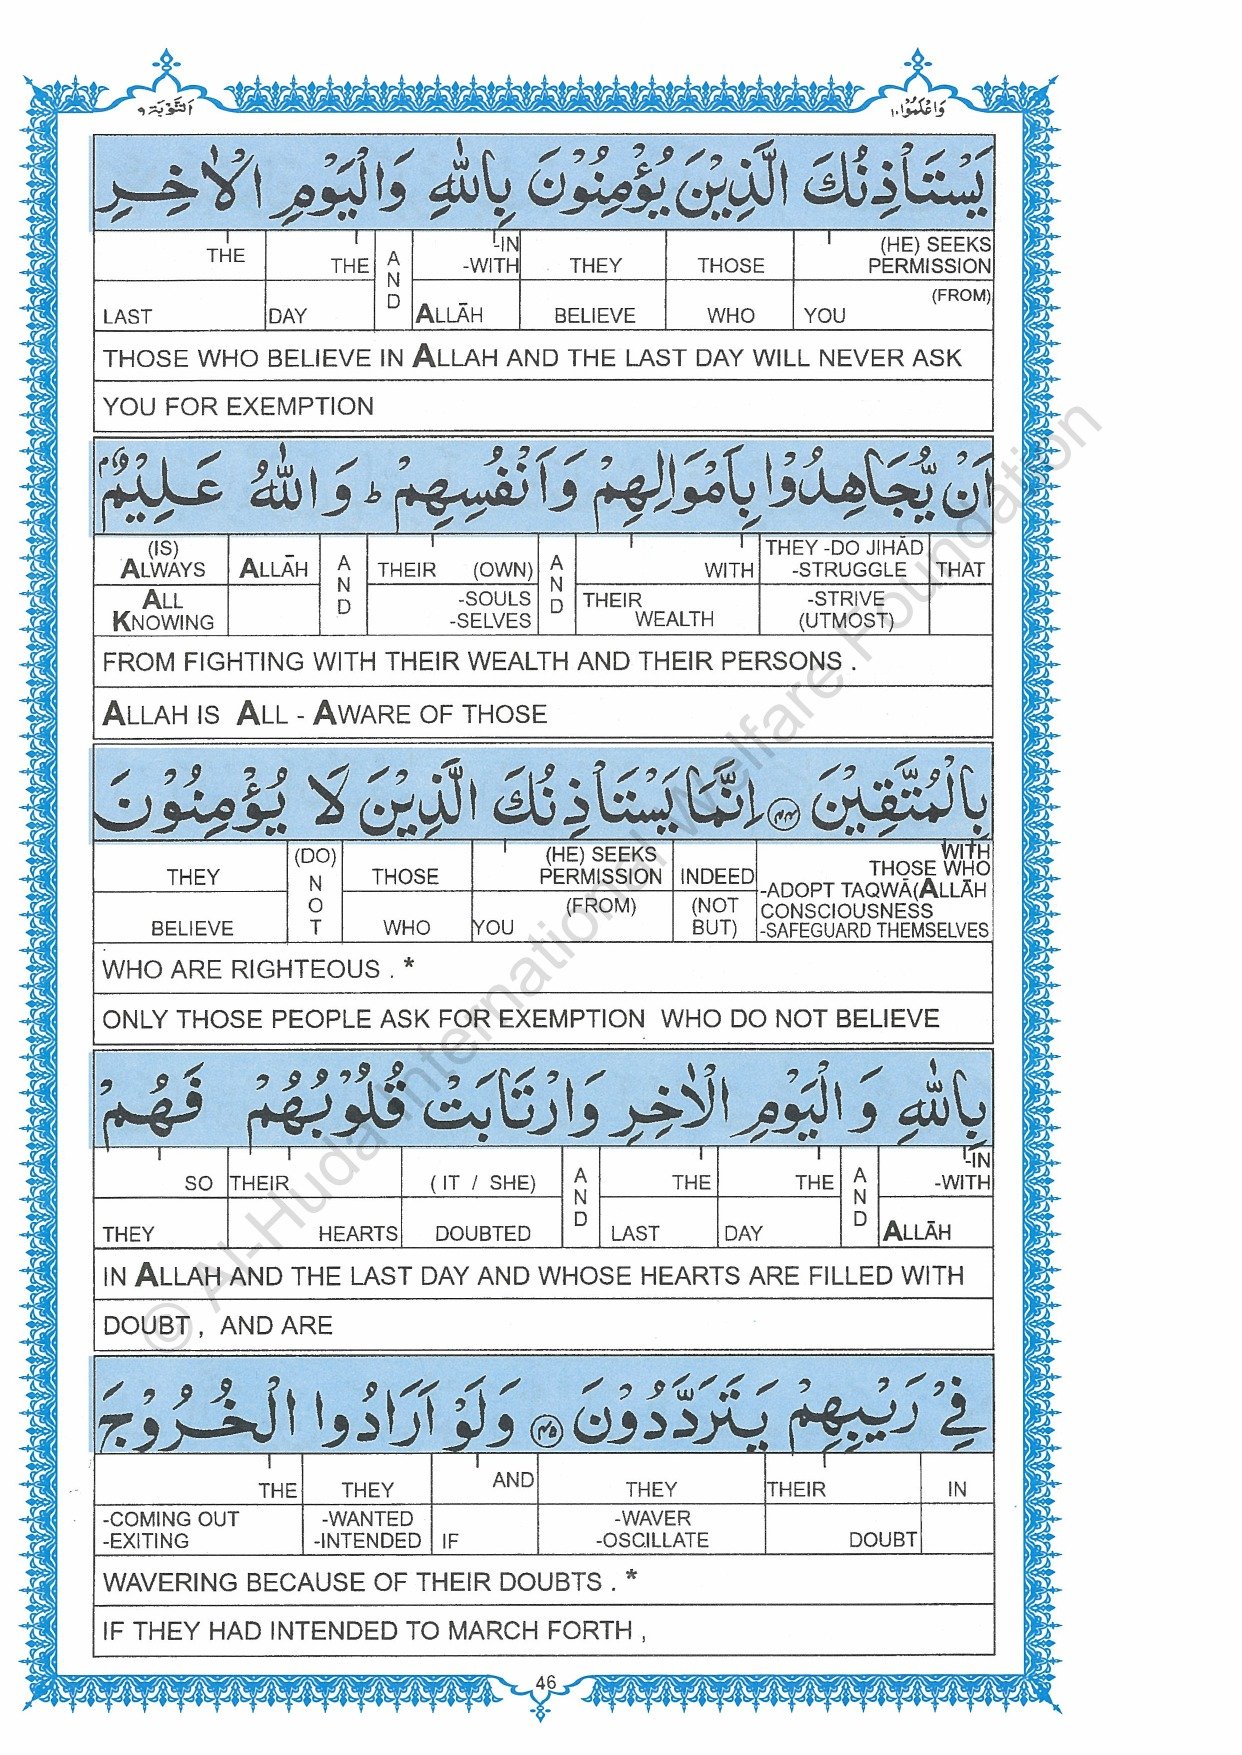 التَّوْبَة ٩
وَاعْلَمُوْا ١٠
يَسْتَاْذِنُكَ الَّذِيْنَ يُؤْمِنُوْنَ بِاللّٰهِ وَالْيَوْمِ الْاٰخِرِ
THE THE AND -IN -WITH THEY THOSE (HE) SEEKS PERMISSION
LAST DAY ALLĀH BELIEVE WHO YOU (FROM)
THOSE WHO BELIEVE IN ALLAH AND THE LAST DAY WILL NEVER ASK
YOU FOR EXEMPTION
اَنْ يُّجَاهِدُوْا بِاَمْوَالِهِمْ وَاَنْفُسِهِمْ ؕ وَ اللّٰهُ عَلِيْمٌۢ
(IS) ALWAYS ALLĀH AND THEIR (OWN) AND WITH THEY -DO JIHĀD -STRUGGLE THAT
ALL KNOWING -SOULS -SELVES THEIR WEALTH -STRIVE (UTMOST)
FROM FIGHTING WITH THEIR WEALTH AND THEIR PERSONS .
ALLAH IS ALL - AWARE OF THOSE
بِالْمُتَّقِيْنَ ۴۴ اِنَّمَا يَسْتَاْذِنُكَ الَّذِيْنَ لَا يُؤْمِنُوْنَ
THEY (DO) NOT THOSE (HE) SEEKS PERMISSION INDEED WITH THOSE WHO
BELIEVE WHO YOU (FROM) (NOT BUT) -ADOPT TAQWĀ(ALLĀH CONSCIOUSNESS -SAFEGUARD THEMSELVES
WHO ARE RIGHTEOUS . *
ONLY THOSE PEOPLE ASK FOR EXEMPTION WHO DO NOT BELIEVE
بِاللّٰهِ وَ الْيَوْمِ الْاٰخِرِ وَارْتَابَتْ قُلُوْبُهُمْ فَهُمْ
SO THEIR ( IT / SHE) AND THE THE AND -IN -WITH
THEY HEARTS DOUBTED LAST DAY ALLĀH
IN ALLAH AND THE LAST DAY AND WHOSE HEARTS ARE FILLED WITH
DOUBT , AND ARE
فِيْ رَيْبِهِمْ يَتَرَدَّدُوْنَ ۴۵ وَلَوْ اَرَادُوا الْخُرُوْجَ
THE THEY AND THEY THEIR IN
-COMING OUT -EXITING -WANTED -INTENDED IF -WAVER -OSCILLATE DOUBT
WAVERING BECAUSE OF THEIR DOUBTS . *
IF THEY HAD INTENDED TO MARCH FORTH ,
46
© Al-Huda International Welfare Foundation